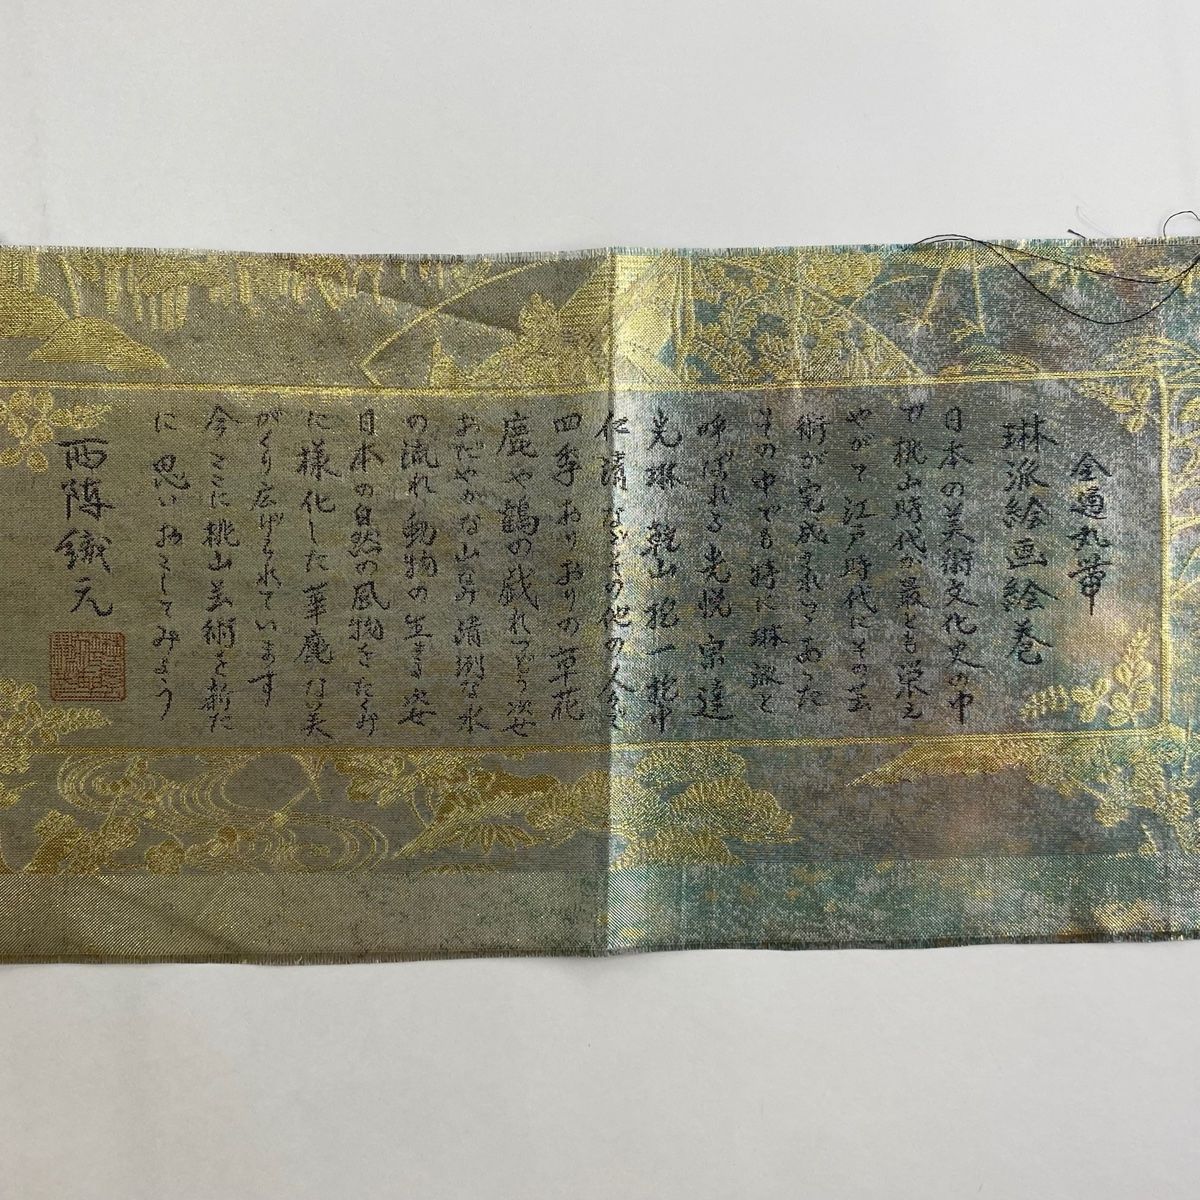 全通丸帯
琳派絵画絵巻
日本の美術文化史の中
で桃山時代が最とも栄え
やがて江戸時代にその芸
術が完成されつゝあった
その中でも特に琳派と
呼ばれる光悦宗達
光琳乾山抱一芦中
仁清などその他の人々
四季おりおりの草花
鹿や鶴の戯れつどう姿
おだやかな山身清洌な水
の流れ動物の生きる姿
日本の自然の風物をたくみ
に様化した華麗な美
がくり広げられています
今こゝに桃山芸術を新た
に思いおこしてみよう
西陣織元